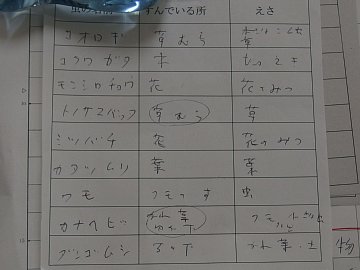 虫の名前 すんでいる所 えさ
コオロギ 草むら 草
コクワガタ 木
モンシロチョウ 花 花のみつ
トノサマバッタ 草むら 草
ミツバチ 花 花のみつ
カタツムリ 葉 葉
クモ クモのす 虫
カナヘビ かれ葉の下 クモ
ダンゴムシ 石の下 かれ葉・土
物